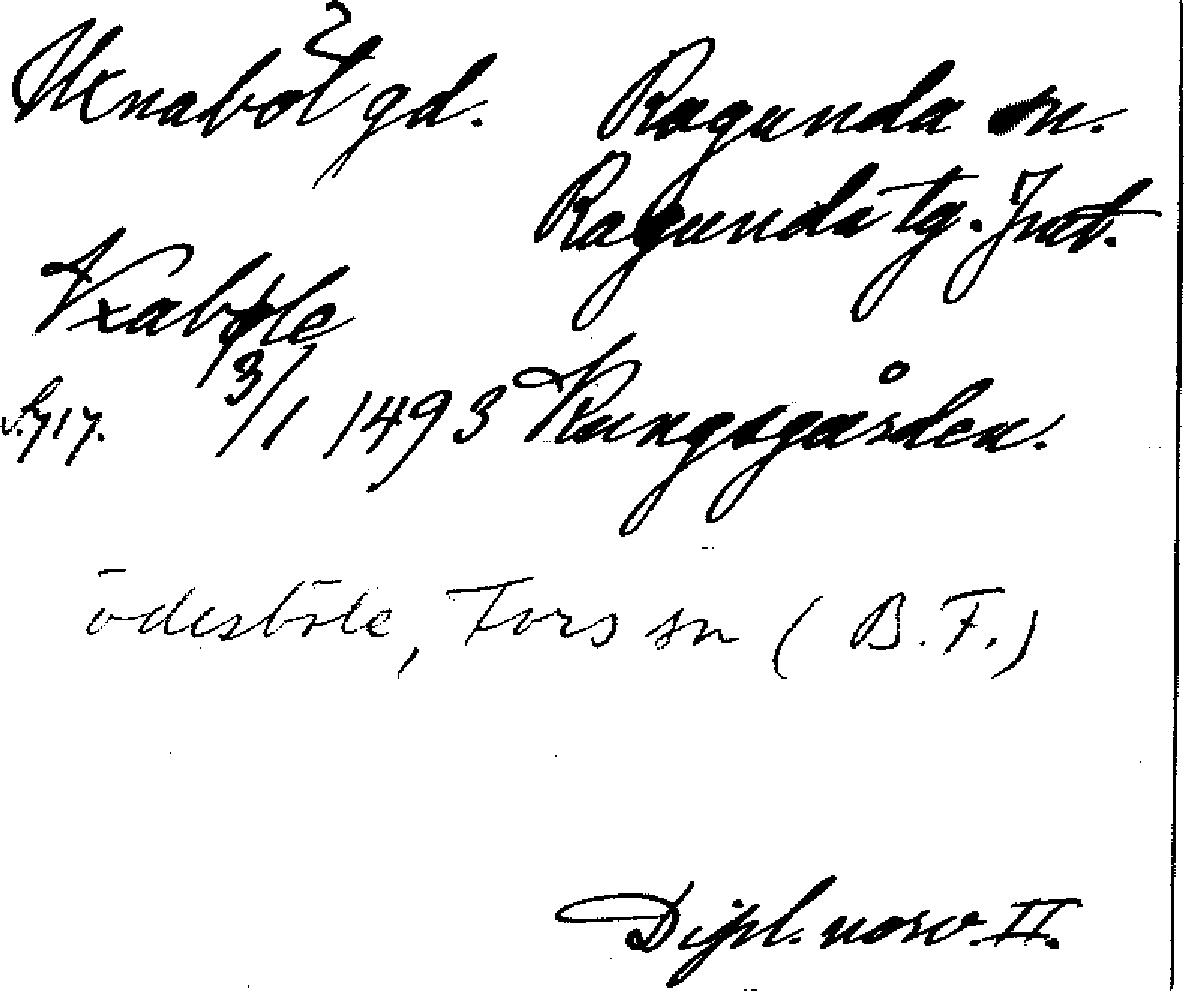 Uxnaböl gd. Ragunda sn.
Ragunda tg. Jmt.
Vxabøle
s. 717. 3/1 1493 Kungsgården.
ödesböle, Fors sn (B.F.)
Dipl. norv. II.